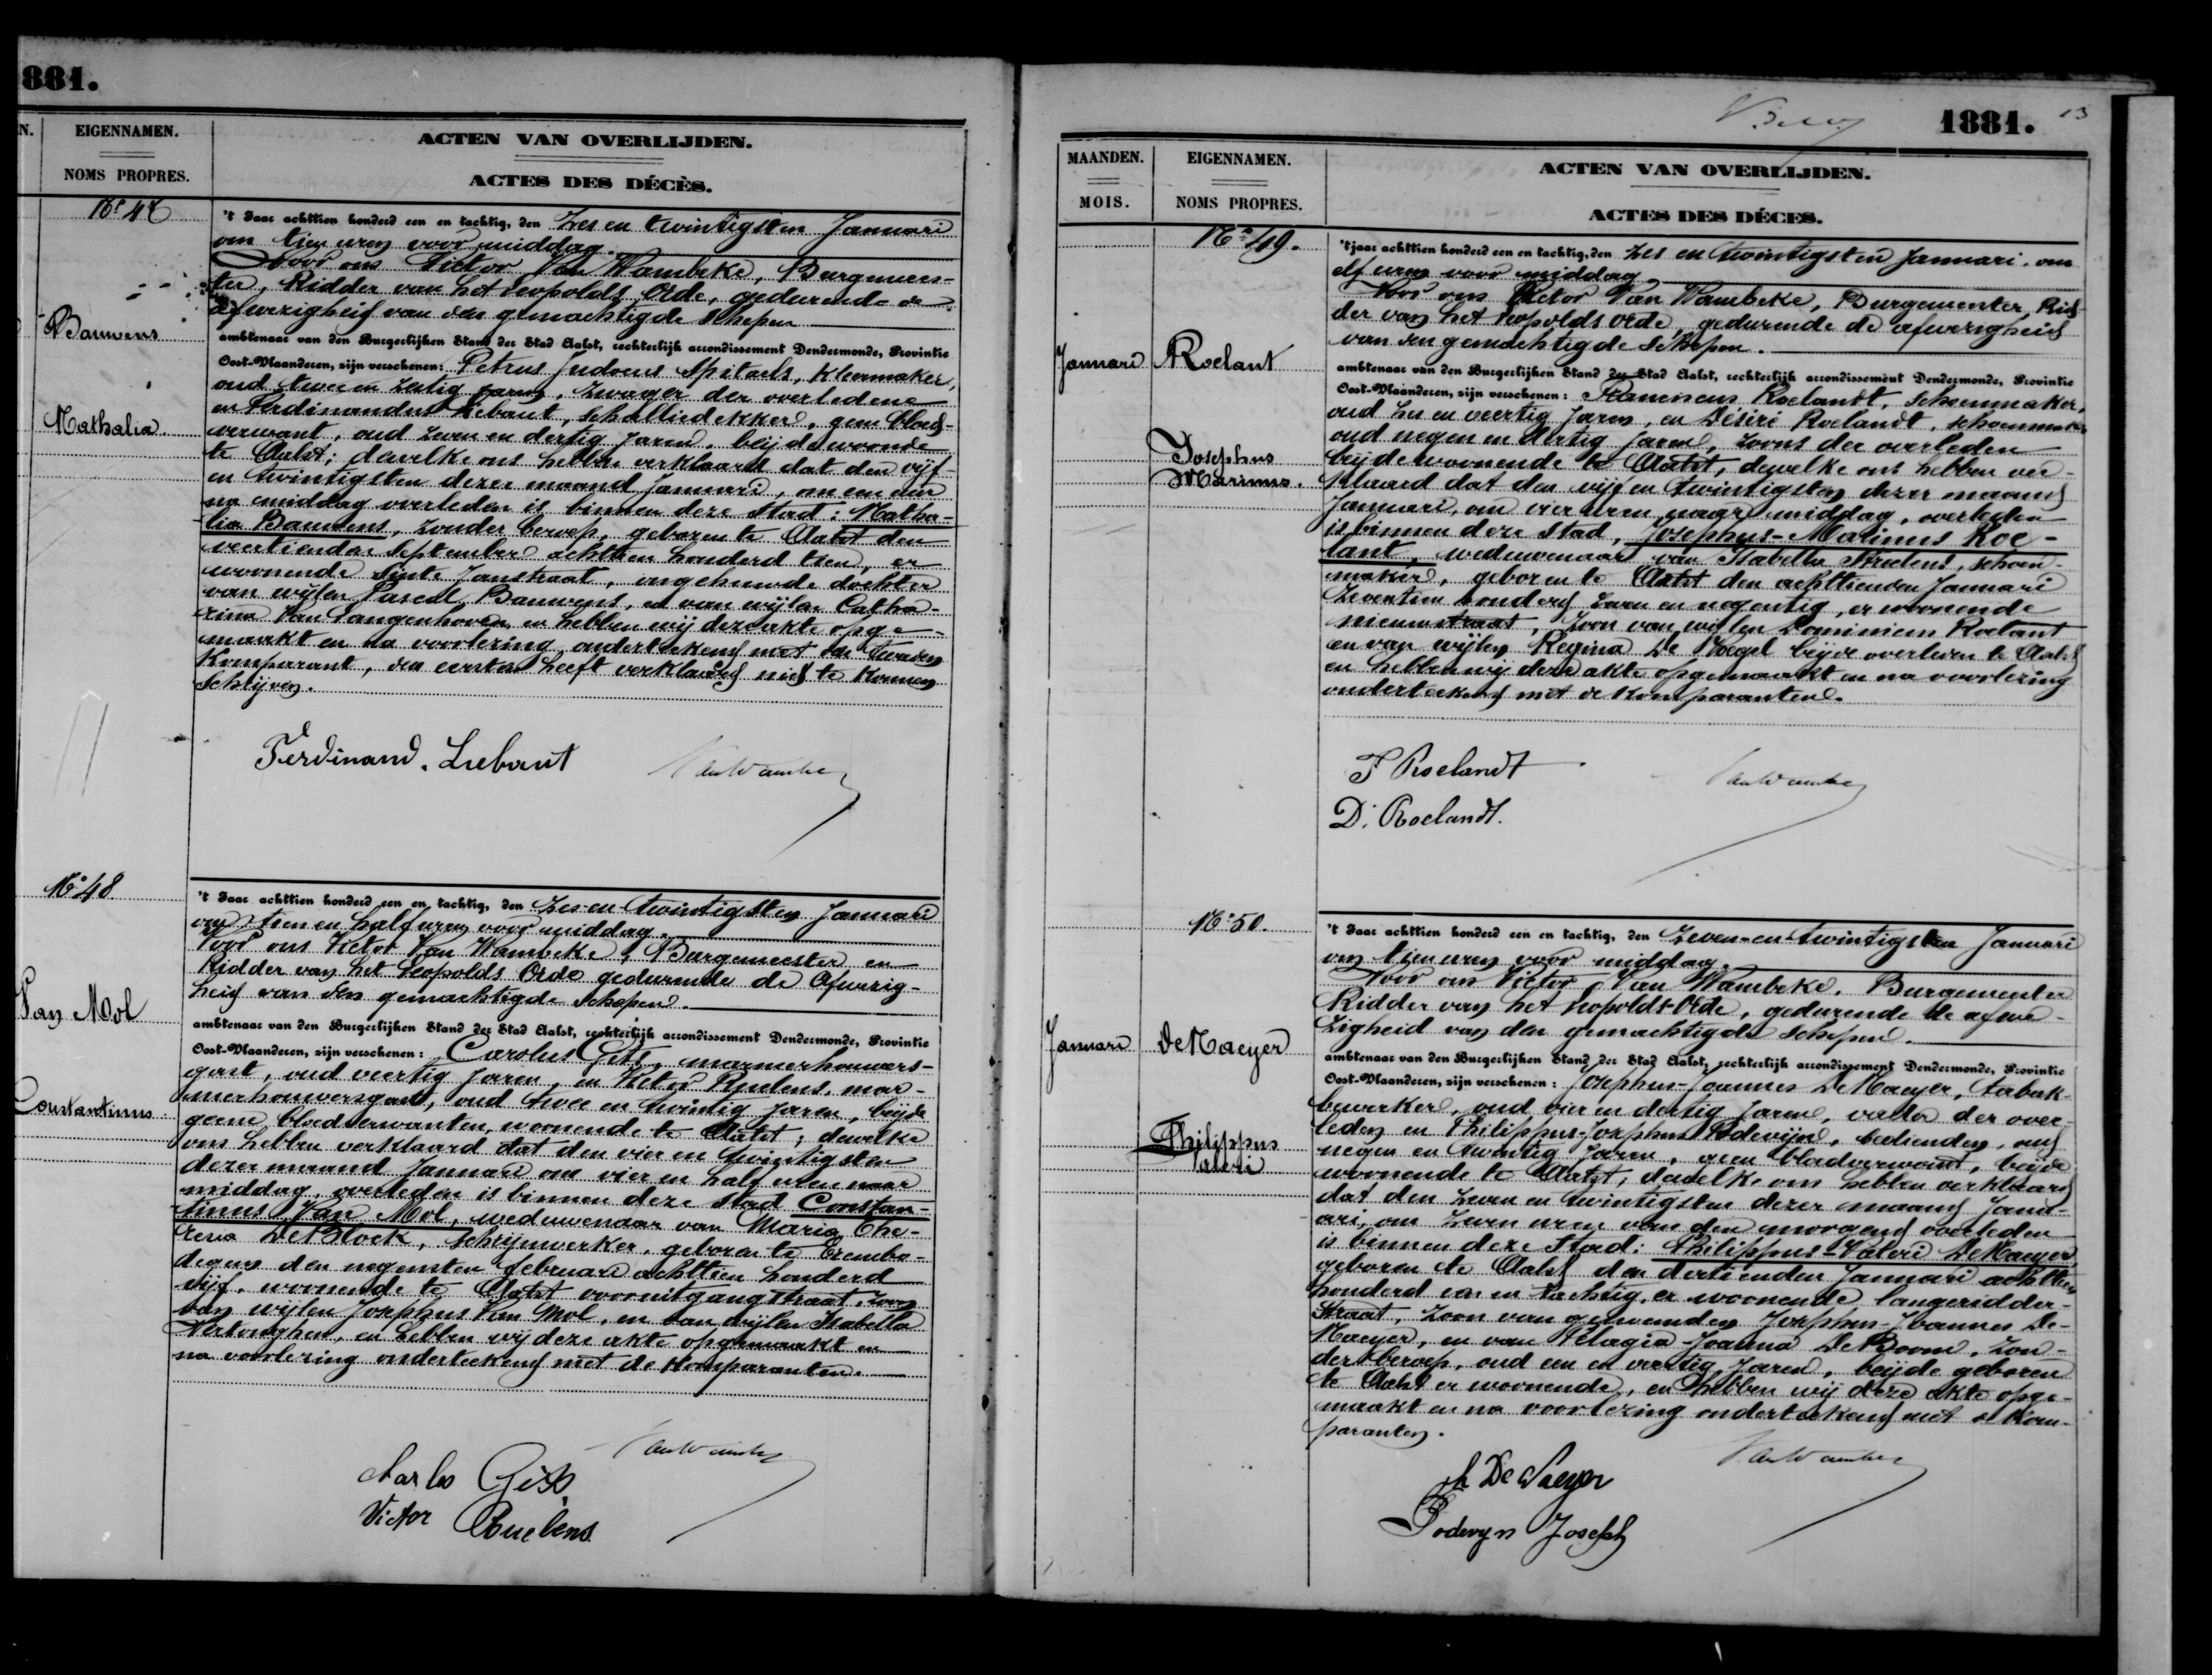 881.
N.
EIGENNAMEN.
NOMS PROPRES.
ACTEN VAN OVERLIJDEN.
ACTES DES DÉCÈS.
Nº 47
Bauwens
Nathalia
't Jaar achttien honderd een en tachtig, den Zes en twintigsten Januari
om tien uren voor middag.
Voor ons Victor Van Wambeke, Burgemees-
ter, Ridder van het Leopolds Orde, gedurende de
afwezigheid van den gemachtigde Schepen
ambtenaar van den Burgerlijken Stand der Stad Aalst, rechterlijk arrondissement Dendermonde, Provintie
Oost-Vlaanderen, zijn verschenen: Petrus Judocus Spitaels, Kleermaker,
oud twee en zestig jaren, Zwager der overledene
en Ferdinandus Liebaut, Schalliedekker, geen bloed-
verwant, oud zeven en dertig jaren, beijde woonende
te Aalst; dewelke ons hebben verklaard dat den vijf-
en twintigsten dezer maand Januari, om een uur
na middag overleden is binnen deze Stad: Natha-
lia Bauwens, zonder beroep, geboren te Aalst den
veertienden September achttien honderd tien, er
woonende Sinte Janstraat, ongehuwde dochter
van wijlen Pascal Bauwens, en van wijlen Catha-
rina Van Langenhoven, en hebben wij deze akte opge-
maakt en na voorlezing onderteekend met den tweeden
Komparant, den eersten heeft verklaard niet te konnen
Schrijven.
Ferdinand. Liebaut
VanWambeke
Nº 48
Van Mol
Constantinus
't Jaar achttien honderd een en tachtig, den Zes-en-twintigsten Januari
om tien en half uren voor middag.
Voor ons Victor Van Wambeke, Burgemeester en
Ridder van het Leopolds Orde gedurende de Afwezig-
heid van den gemachtigde Schepen.
ambtenaar van den Burgerlijken Stand der Stad Aalst, rechterlijk arrondissement Dendermonde, Provintie
Oost-Vlaanderen, zijn verschenen: Carolus Gets, marmerhouwers-
gast, oud veertig jaren, en Victor Ruelens, mar-
merhouwersgast, oud twee en twintig jaren, beijde
geene bloedverwanten, woonende te Aalst; dewelke
ons hebben verklaard dat den vier en twintigsten
dezer maand Januari om vier en half uren naar
middag, overleden is binnen deze Stad Constan-
tinus Van Mol, weduwenaar van Maria The-
resia De Block, Schrijnwerker, geboren te Erembo-
degem den negensten februari achttien honderd
vijf, woonende te Aalst vooruitgangstraat, zoon
van wijlen Josephus Van Mol, en van wijlen Isabella
Vertonghen, en hebben wij deze akte opgemaakt en
na voorlezing onderteekend met de Komparanten.
VanWambeke
Charles Gets
Victor Ruelens
1881.
13
MAANDEN.
MOIS.
EIGENNAMEN.
NOMS PROPRES.
ACTEN VAN OVERLIJDEN.
ACTES DES DÉCES.
Nº 49.
Januari
Roelant
Josephus
Marinus.
't jaar achttien honderd een en tachtig, den Zes en twintigsten Januari, om
elf uren voor middag
Voor ons Victor Van Wambeke, Burgemeester, Rid-
der van het Leopolds orde, gedurende de afwezigheid
van den gemachtigde Schepen.
ambtenaar van den Burgerlijken Stand der Stad Aalst, rechterlijk arrondissement Dendermonde, Provintie
Oost-Vlaanderen, zijn verschenen: Franciscus Roelandt, Schoenmaker,
oud zes en veertig jaren, en Désiré Roelandt, schoenmaker
oud negen en dertig jaren, zoons der overleden
beijde woonende te Aalst, dewelke ons hebben ver-
klaard dat den vijf en twintigsten dezer maand
Januari, om vier uren naar middag, overleden
is binnen deze Stad, Josephus-Marinus Roe-
lant, weduwenaar van Isabella Straetens, schoen-
maker, geboren te Aalst den achttienden Januari
Zeventien honderd zeven en negentig, er woonende
nieuwstraat, Zoon van wijlen Dominicus Roelant
en van wijlen Regina De Voegel beijde overleden te Aalst
en hebben wij deze akte opgemaakt en na voorlezing
onderteekend met de Komparanten.
F Roelandt
D. Roelandt.
VanWambeke
Nº 50.
Januari
De Maeyer
Philippus
Valeri
't Jaar achttien honderd een en tachtig, den Zeven-en-twintigsten Januari
om tien uren voor middag.
Voor ons Victor Van Wambeke, Burgemeester
Ridder van het Leopolds-Orde, gedurende de afwe-
zigheid van den gemachtigde Schepen.
ambtenaar van den Burgerlijken Stand der Stad Aalst, rechterlijk arrondissement Dendermonde, Provintie
Oost-Vlaanderen, zijn verschenen: Josephus-Joannes De Maeyer, tabak-
bewerker, oud vier en dertig jaren, vader der over-
leden en Philippus-Josephus Podevijn, bedienden, oud
negen en twintig jaren, geen bloedverwant, beijde
woonende te Aalst, dewelke ons hebben verklaard
dat den zeven en twintigsten dezer maand Janu-
ari, om zeven uren van den morgend overleden
is binnen deze Stad: Philippus-Valeri De Maeyer,
geboren te Aalst den dertienden Januari achttien
honderd een en tachtig, er woonende langeridder-
straat, Zoon van genoemden Josephus-Joannes De-
Maeyer, en van Pelagia-Joanna De Boom, Zon-
der beroep, oud een en veertig jaren, beijde geboren
te Aalst er woonende, en hebben wij deze akte opge-
maakt en na voorlezing onderteekend met de Kom-
paranten.
VanWambeke
De Maeyer
Podevyn Joseph